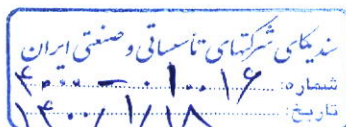 سندیکای شرکتهای تأسیساتی و صنعتی ایران
شماره: ۴۰۰۰ – ۰۱۰۰۱۶
تاریخ: ۱۴۰۰/۱/۱۸